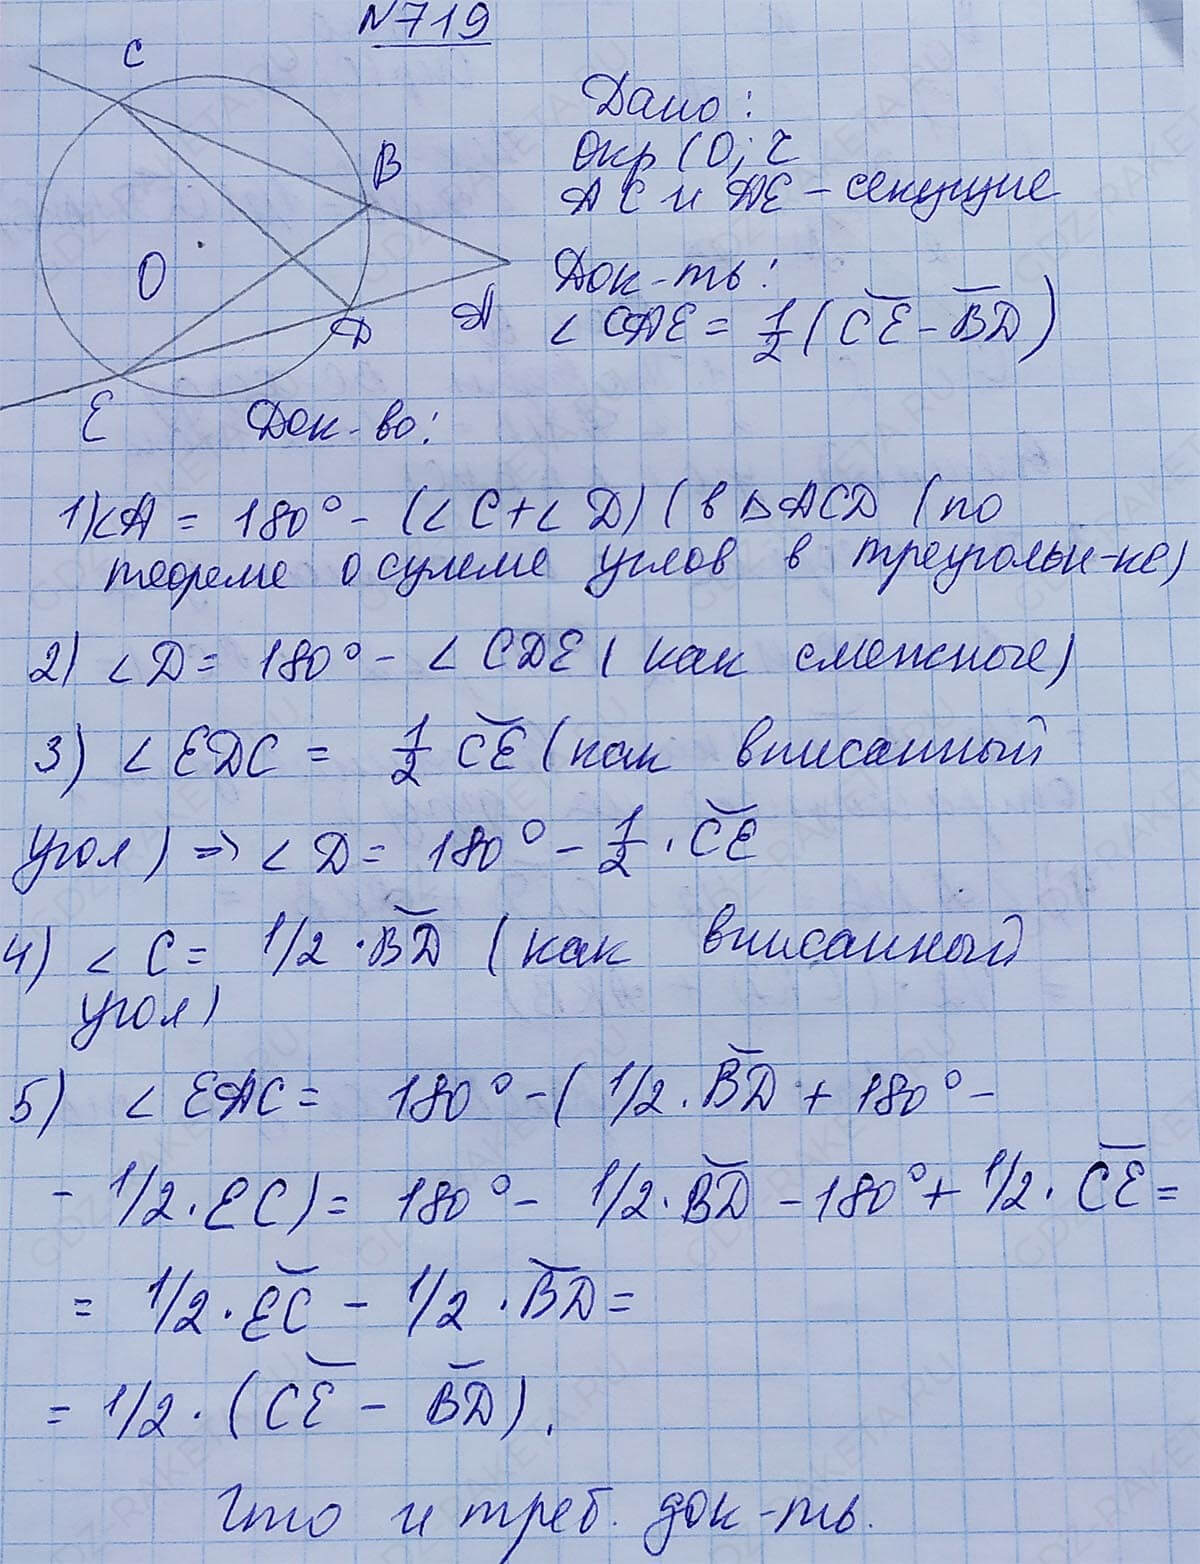 N719
C
B
O
D
A
E
Дано:
Окр (O; r
AC и AE - секущие
Док-ть:
∠CAE = 1/2 (C͝E - B͝D)
Док-во:
1) ∠A = 180° - (∠C + ∠D) (в △ACD (по
теореме о сумме углов в треугольн-ке)
2) ∠D = 180° - ∠CDE (как смежные)
3) ∠EDC = 1/2 C͝E (как вписанный
угол) => ∠D = 180° - 1/2 · C͝E
4) ∠C = 1/2 · B͝D (как вписанный
угол)
5) ∠EAC = 180° - (1/2 · B͝D + 180° -
- 1/2 · EC) = 180° - 1/2 · B͝D - 180° + 1/2 · C͝E =
= 1/2 · E͝C - 1/2 · B͝D =
= 1/2 · (C͝E - B͝D).
Что и треб. док-ть.